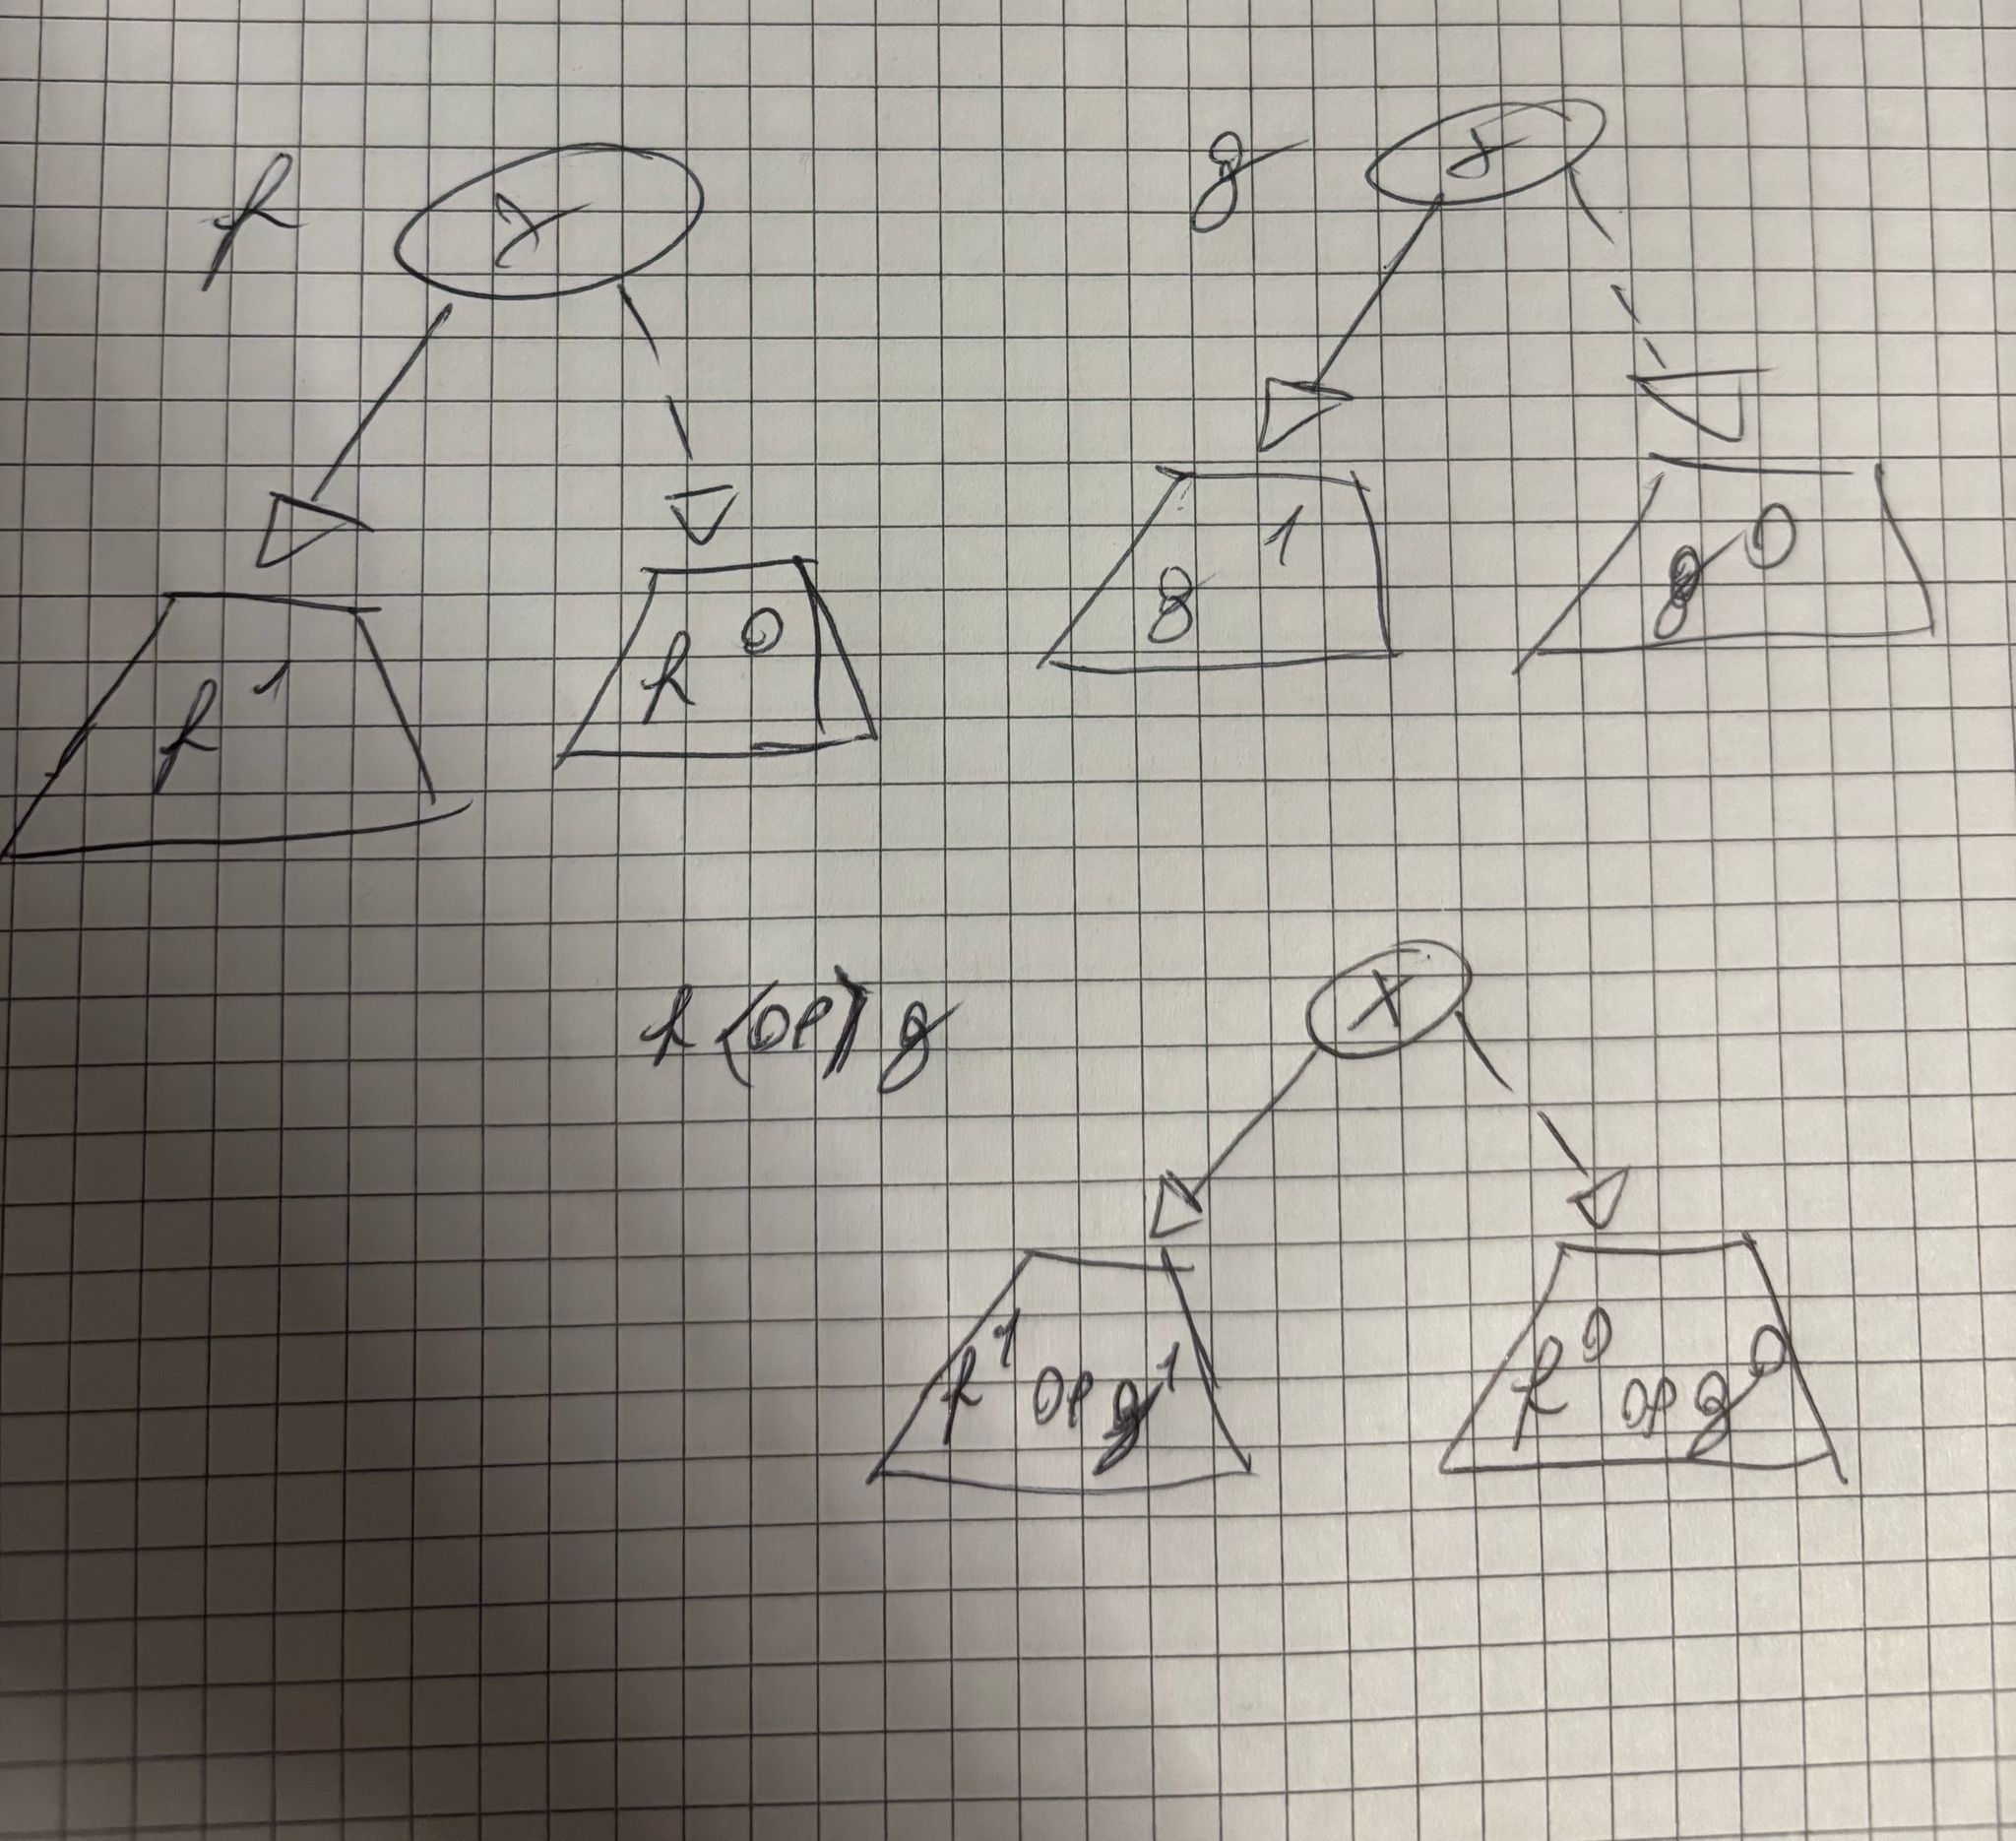 f x
g x
f¹ f⁰
g¹ g⁰
f <op> g x
f¹ op g¹ f⁰ op g⁰